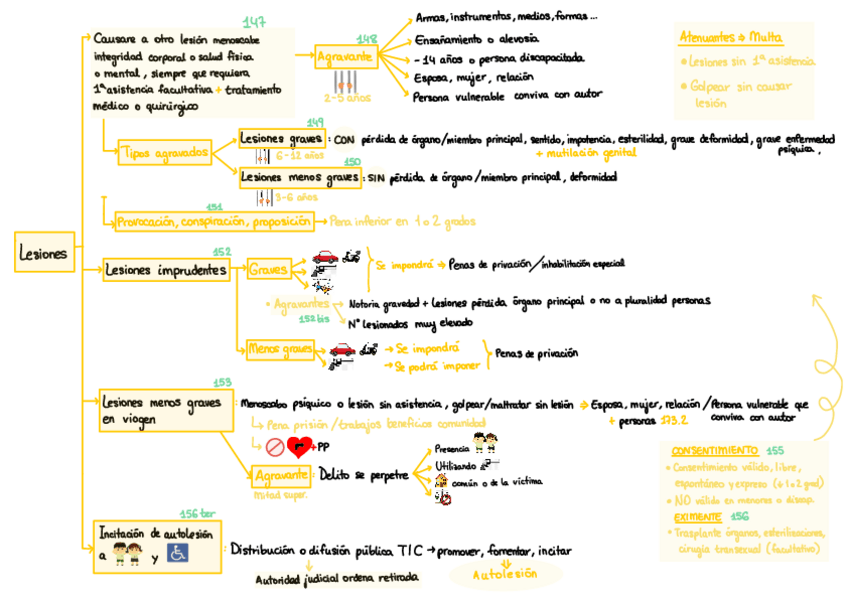 147
Causare a otro lesión menoscabe
integridad corporal o salud física
o mental, siempre que requiera
1ª asistencia facultativa + tratamiento
médico o quirúrgico
148
Agravante
2-5 años
Armas, instrumentos, medios, formas...
Ensañamiento o alevosía
-14 años o persona discapacitada
Esposa, mujer, relación
Persona vulnerable conviva con autor
Atenuantes ⇒ Multa
• Lesiones sin 1ª asistencia
• Golpear sin causar
lesión
Tipos agravados
149
Lesiones graves: CON pérdida de órgano/miembro principal, sentido, impotencia, esterilidad, grave deformidad, grave enfermedad
psíquica.
6-12 años
+ mutilación genital
150
Lesiones menos graves: SIN pérdida de órgano/miembro principal, deformidad
3-6 años
151
Provocación, conspiración, proposición → Pena inferior en 1 o 2 grados
Lesiones
152
Lesiones imprudentes
Graves
Se impondrá → Penas de privación/inhabilitación especial
• Agravantes → Notoria gravedad + Lesiones pérdida órgano principal o no a pluralidad personas
152 bis
Nº lesionados muy elevado
Menos graves
→ Se impondrá
→ Se podrá imponer
Penas de privación
153
Lesiones menos graves
en viogen
: Menoscabo psíquico o lesión sin asistencia, golpear/maltratar sin lesión ⇒ Esposa, mujer, relación/Persona vulnerable que
conviva con autor
+ personas 173.2
Pena prisión/trabajos beneficios comunidad
+PP
Agravante: Delito se perpetre
mitad super.
Presencia
Utilizando
común o de la víctima
CONSENTIMIENTO 155
• Consentimiento válido, libre,
espontáneo y expreso (↓1 o 2 grad)
• NO válido en menores o discap.
EXIMENTE 156
• Trasplante órganos, esterilizaciones,
cirugía transexual (facultativo)
156 ter
Incitación de autolesión
a y
: Distribución o difusión pública TIC → promover, fomentar, incitar
Autoridad judicial ordena retirada
Autolesión